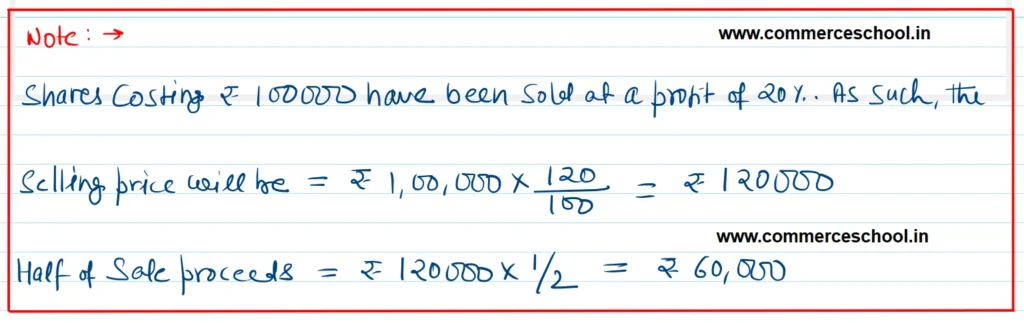 Note : → www.commerceschool.in
Shares Costing ₹ 100000 have been Sold at a profit of 20%. As Such, the
Selling price will be = ₹ 1,00,000 × 120/100 = ₹ 120000
www.commerceschool.in
Half of Sale proceeds = ₹ 120000 × 1/2 = ₹ 60,000